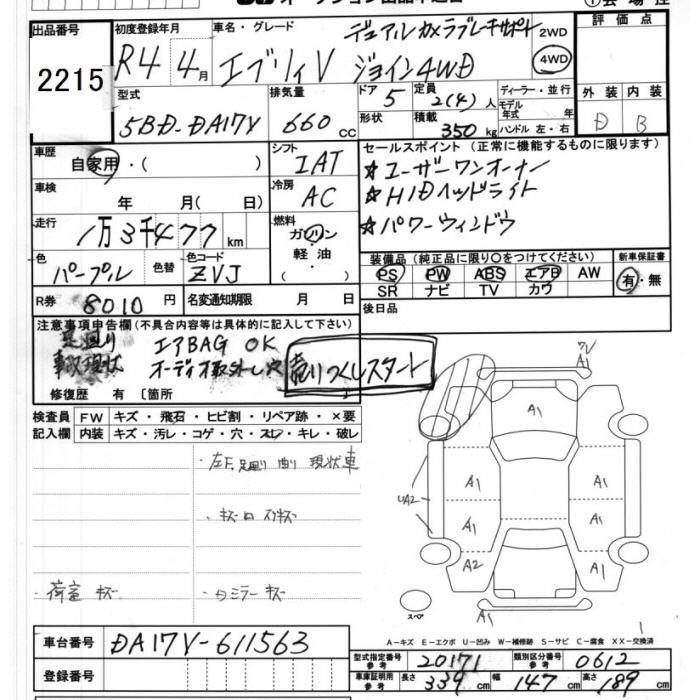 出品番号 初度登録年月 車名・グレード デュアルカメラブレーキサポート 2WD 評価点
2215 R4 4月 エブリィV ジョイン4WD 4WD
型式 排気量 ドア 定員 ディーラー・並行 外装 内装
5BD-DA17V 660cc 5 2(4)人 モデル年式 年 D B
形状 積載 350kg ハンドル 左・右
車歴 自家用・( ) シフト IAT セールスポイント (正常に機能するものに限ります)
☆ユーザーワンオーナー
車検 年 月(日) 冷房 AC ☆HIDヘッドライト
走行 1万3千477km 燃料 ガソリン・軽油・( ) ☆パワーウィンドウ
色 パープル 色替 色コード ZVJ 装備品 (純正品に限り○をつけてください) 新車保証書
PS PW ABS エアB AW 有・無
SR ナビ TV カワ
R券 8010円 名変通知期限 月 日 後日品
注意事項申告欄(不具合内容等は具体的に記入して下さい)
足廻り エアBAG OK
現状 オーディオ取外し穴 売りつくしスタート
修復歴 有 [箇所 ]
検査員記入欄 FW キズ・飛石・ヒビ割・リペア跡・×要
内装 キズ・汚レ・コゲ・穴・スレ・キレ・破レ
左F.足廻り曲り 現状車
荷室 キズ
ミラーキズ
A1
A1
UA2
A1 A1
A1 A1
A2 A1
スペア A1
A-キズ E-エクボ U-凹み W-補修跡 S-サビ C-腐食 XX-交換済
車台番号 DA17V-611563
登録番号
型式指定番号 参考 20171 類別区分番号 参考 0612
車庫証明用 参考 長さ 339cm 幅 147cm 高さ 189cm